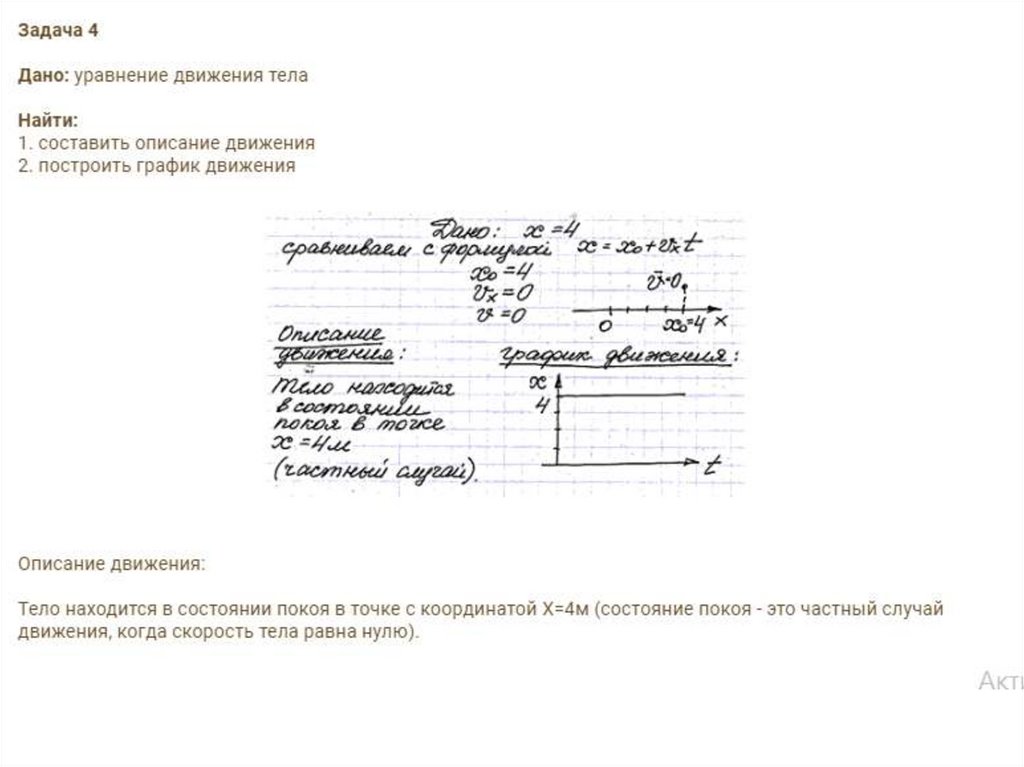 Задача 4
Дано: уравнение движения тела
Найти:
1. составить описание движения
2. построить график движения
Дано: x = 4
сравниваем с формулой x = x₀ + vₓt
x₀ = 4
vₓ = 0
v = 0
v̄=0
0 x₀=4 x
Описание
движения:
график движения:
Тело находится
в состоянии
покоя в точке
x = 4м
(частный случай).
x
4
t
Описание движения:
Тело находится в состоянии покоя в точке с координатой X=4м (состояние покоя - это частный случай
движения, когда скорость тела равна нулю).
Акти